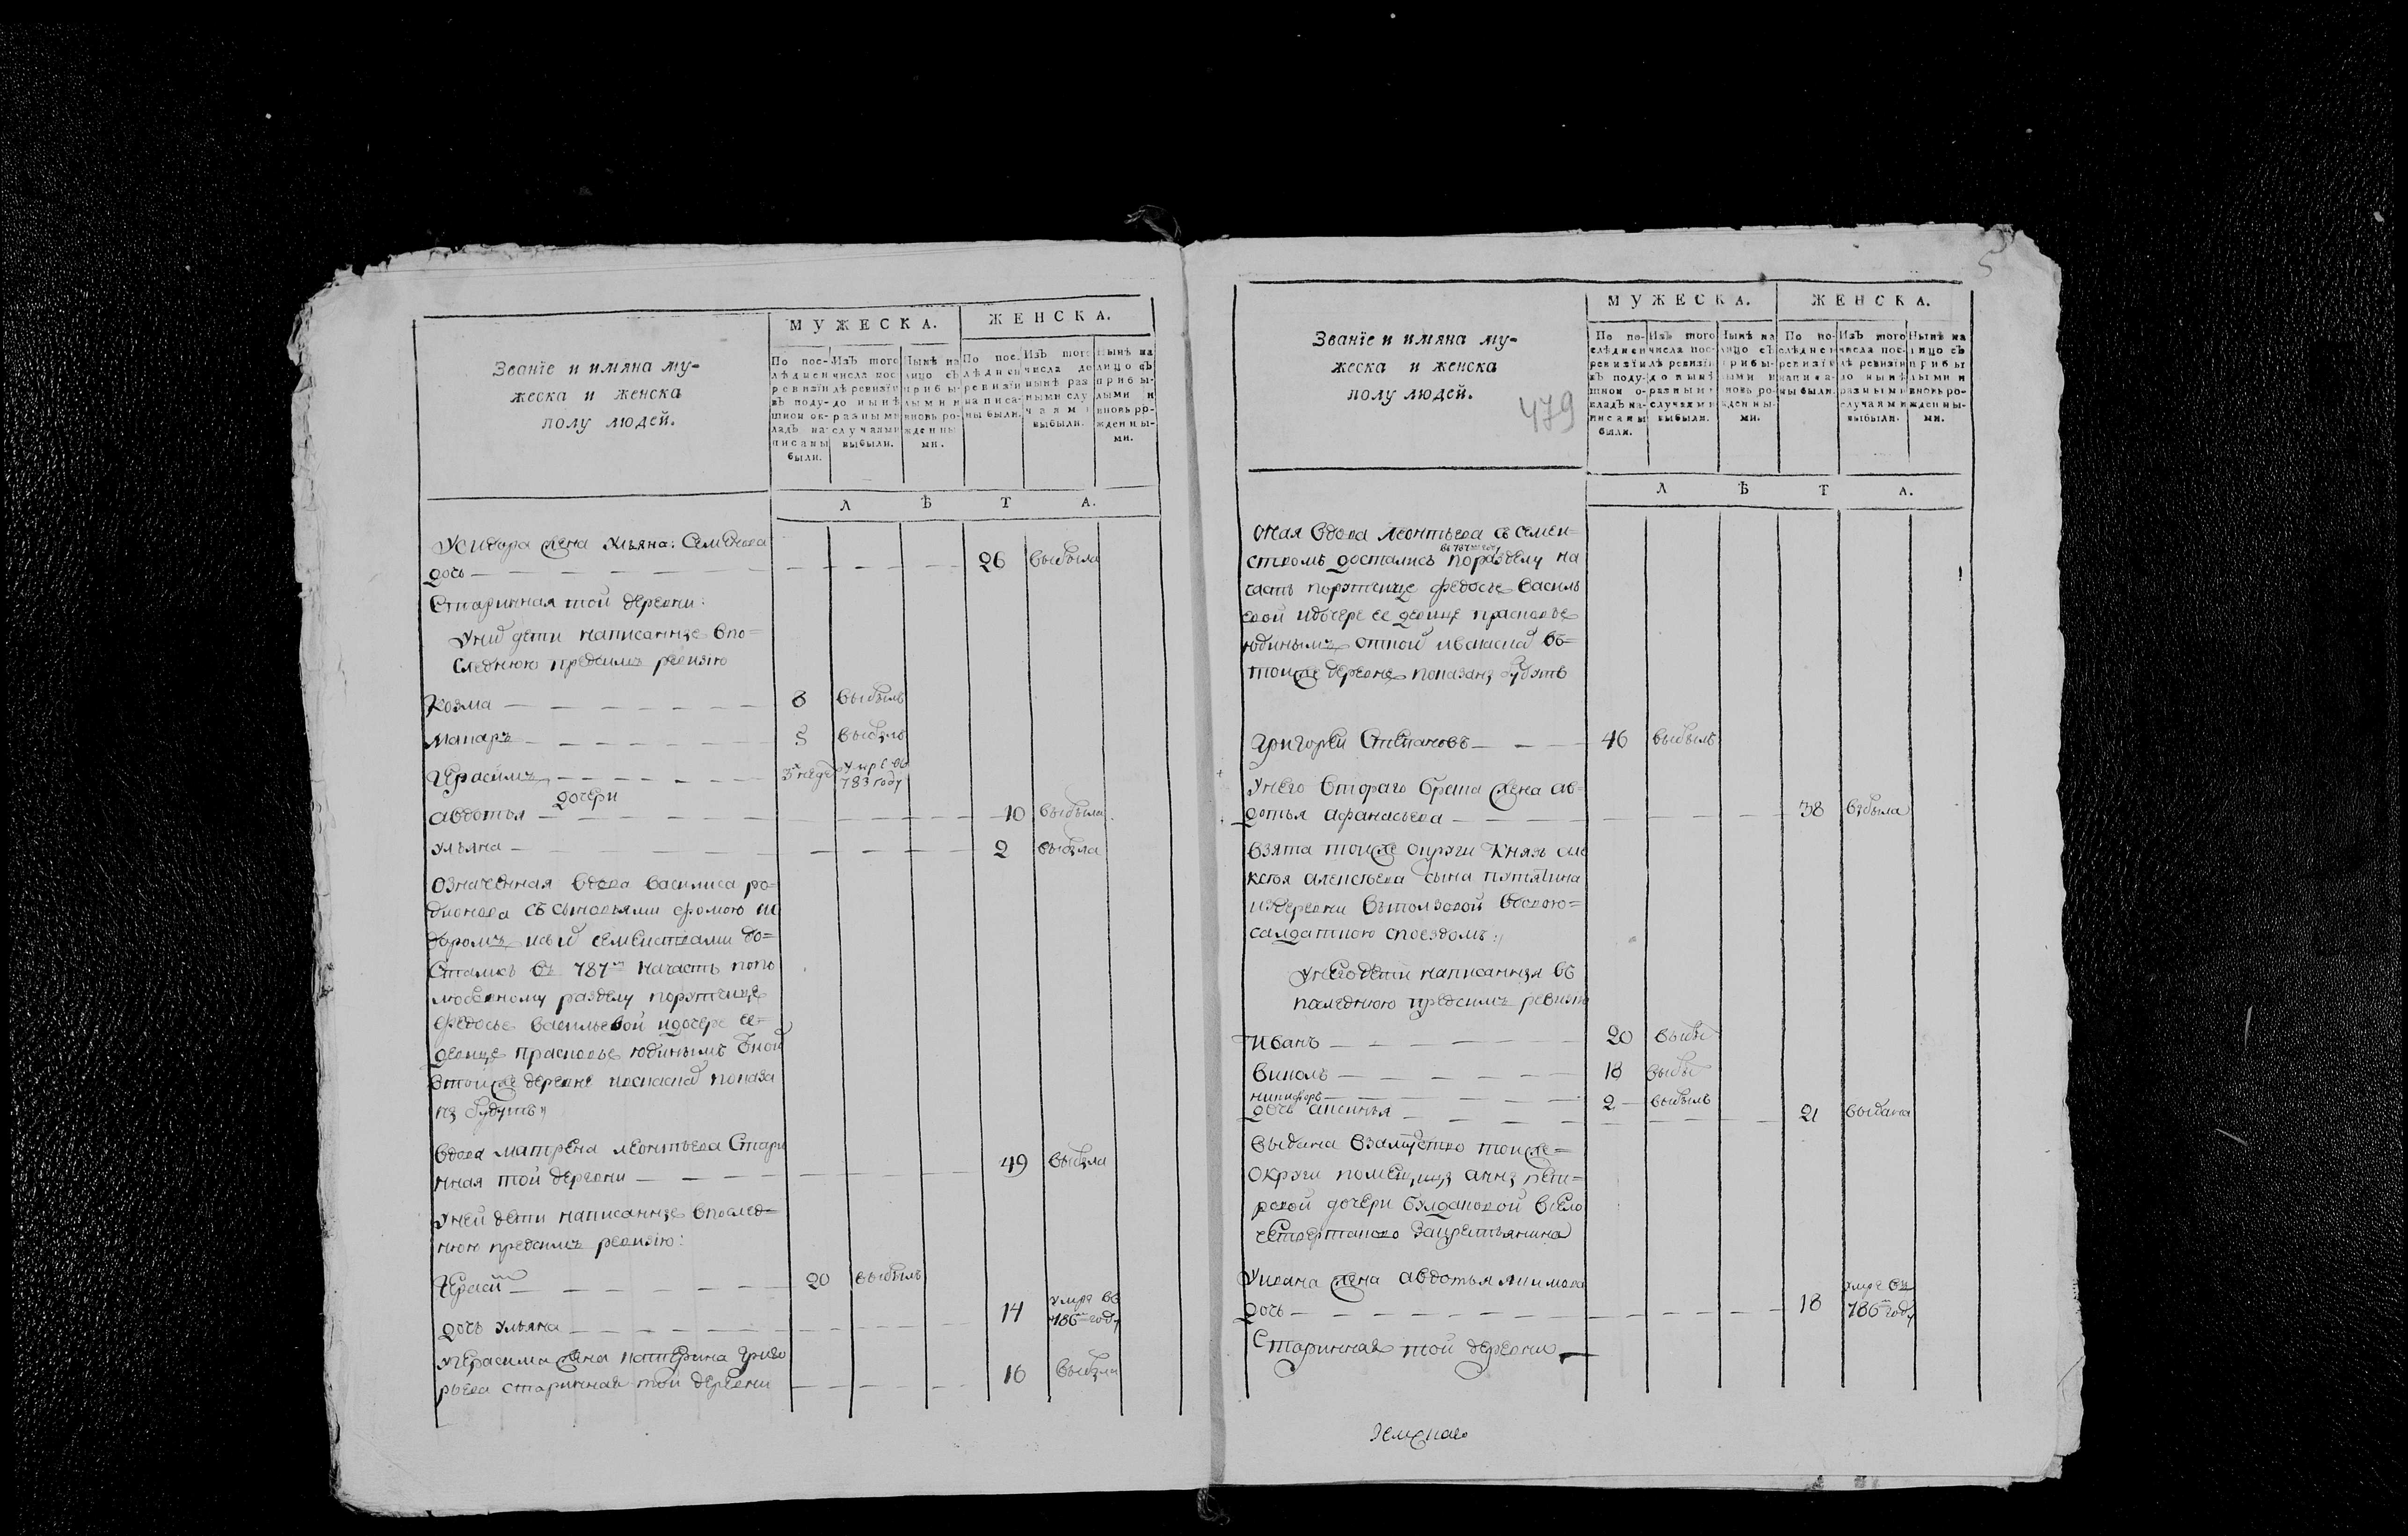 Званіе и имяна му-
жеска и женска
полу людей.
МУЖЕСКА.
ЖЕНСКА.
По пос-
лѣдней
ревизіи
въ поду-
шной ок-
ладъ на-
писаны
были.
Изъ того
числа пос-
лѣ ревизіи
до нынѣ
разными
случаями
выбыли.
Нынѣ на
лицо съ
прибы-
лыми и
вновь ро-
жденны-
ми.
По пос-
лѣдней
ревизіи
написа-
ны были.
Изъ того
числа до
нынѣ раз-
ными слу-
чаями
выбыли.
Нынѣ на
лицо съ
прибы-
лыми и
вновь ро-
жденны-
ми.
ЛѢТА.
Усидора жена Ульяна Семенова
дочь 26 выбыла
Старинная той деревни:
Уних дети написанные впо=
следнюю предсимъ ревизию
Козма 8 выбылъ
Макаръ 5 выбылъ
Герасимъ 3х недѣ умре въ
783 году
дочери
Авдотья 10 выбыла
Ульяна 2 выбыла
Означенная вдова Василиса ро=
дионова съ сыновьями фомою си
доромъ исых семействами до=
стались въ 787м начасть попо
любовному разделу порутчице
Федосье Васильевой идочере ее=
девице Прасковье Юдинымъ
втойже деревне показа
ны будутъ
вдова Матрена Леонтьева Стари
нная той деревни 49 выбыла
Уней дети написанные вослед=
нюю предсимъ ревизию:
Герасим 20 выбылъ
дочь Ульяна 14 умре въ
786м году
УГерасима жена Катерина Григо
рьева старинная той деревни 16 выбыла
5
Званіе и имяна му-
жеска и женска
полу людей.
479
МУЖЕСКА.
ЖЕНСКА.
По по-
слѣдней
ревизіи
въ поду-
шной о-
кладъ на-
писаны
были.
Изъ того
числа пос-
лѣ ревизіи
до нынѣ
разными
случаями
выбыли.
Нынѣ на
лицо съ
прибы-
лыми и
вновь ро-
жденны-
ми.
По по-
слѣдней
ревизіи
написа-
ны были.
Изъ того
числа пос-
лѣ ревизіи
до нынѣ
разными
случаями
выбыли.
Нынѣ на
лицо съ
прибы-
лыми и
вновь ро-
жденны-
ми.
ЛѢТА.
Оная вдова Леонтьева съ семей=
ствомъ достались въ 787м году поразделу на
часть порутчице Федосье Василь
евой идочере ее девице Прасковье
Юдинымъ
тойже деревне показаны будутъ
Григорей Степановъ 46 выбылъ
Унего втораго брака жена Ав=
дотья Афанасьева 38 выбыла
взята тойже округи Князь Але
ксея Алексеева сына Путятина
издеревни
салдаткою споездомъ
Унего дети написанныя въ
последнюю предсимъ ревизию
Иванъ 20 выбы
Виколъ 18 выбы
Никифоръ 2 выбылъ
дочь Аксинья 21 выдана
выдана взамужство тойже=
округи помещицы Анны Пет=
ровой дочери Булгаковой всело
закрестьянина
Уивана жена Авдотья Якимова
дочь 18 умре въ
786м году
Старинная той деревни